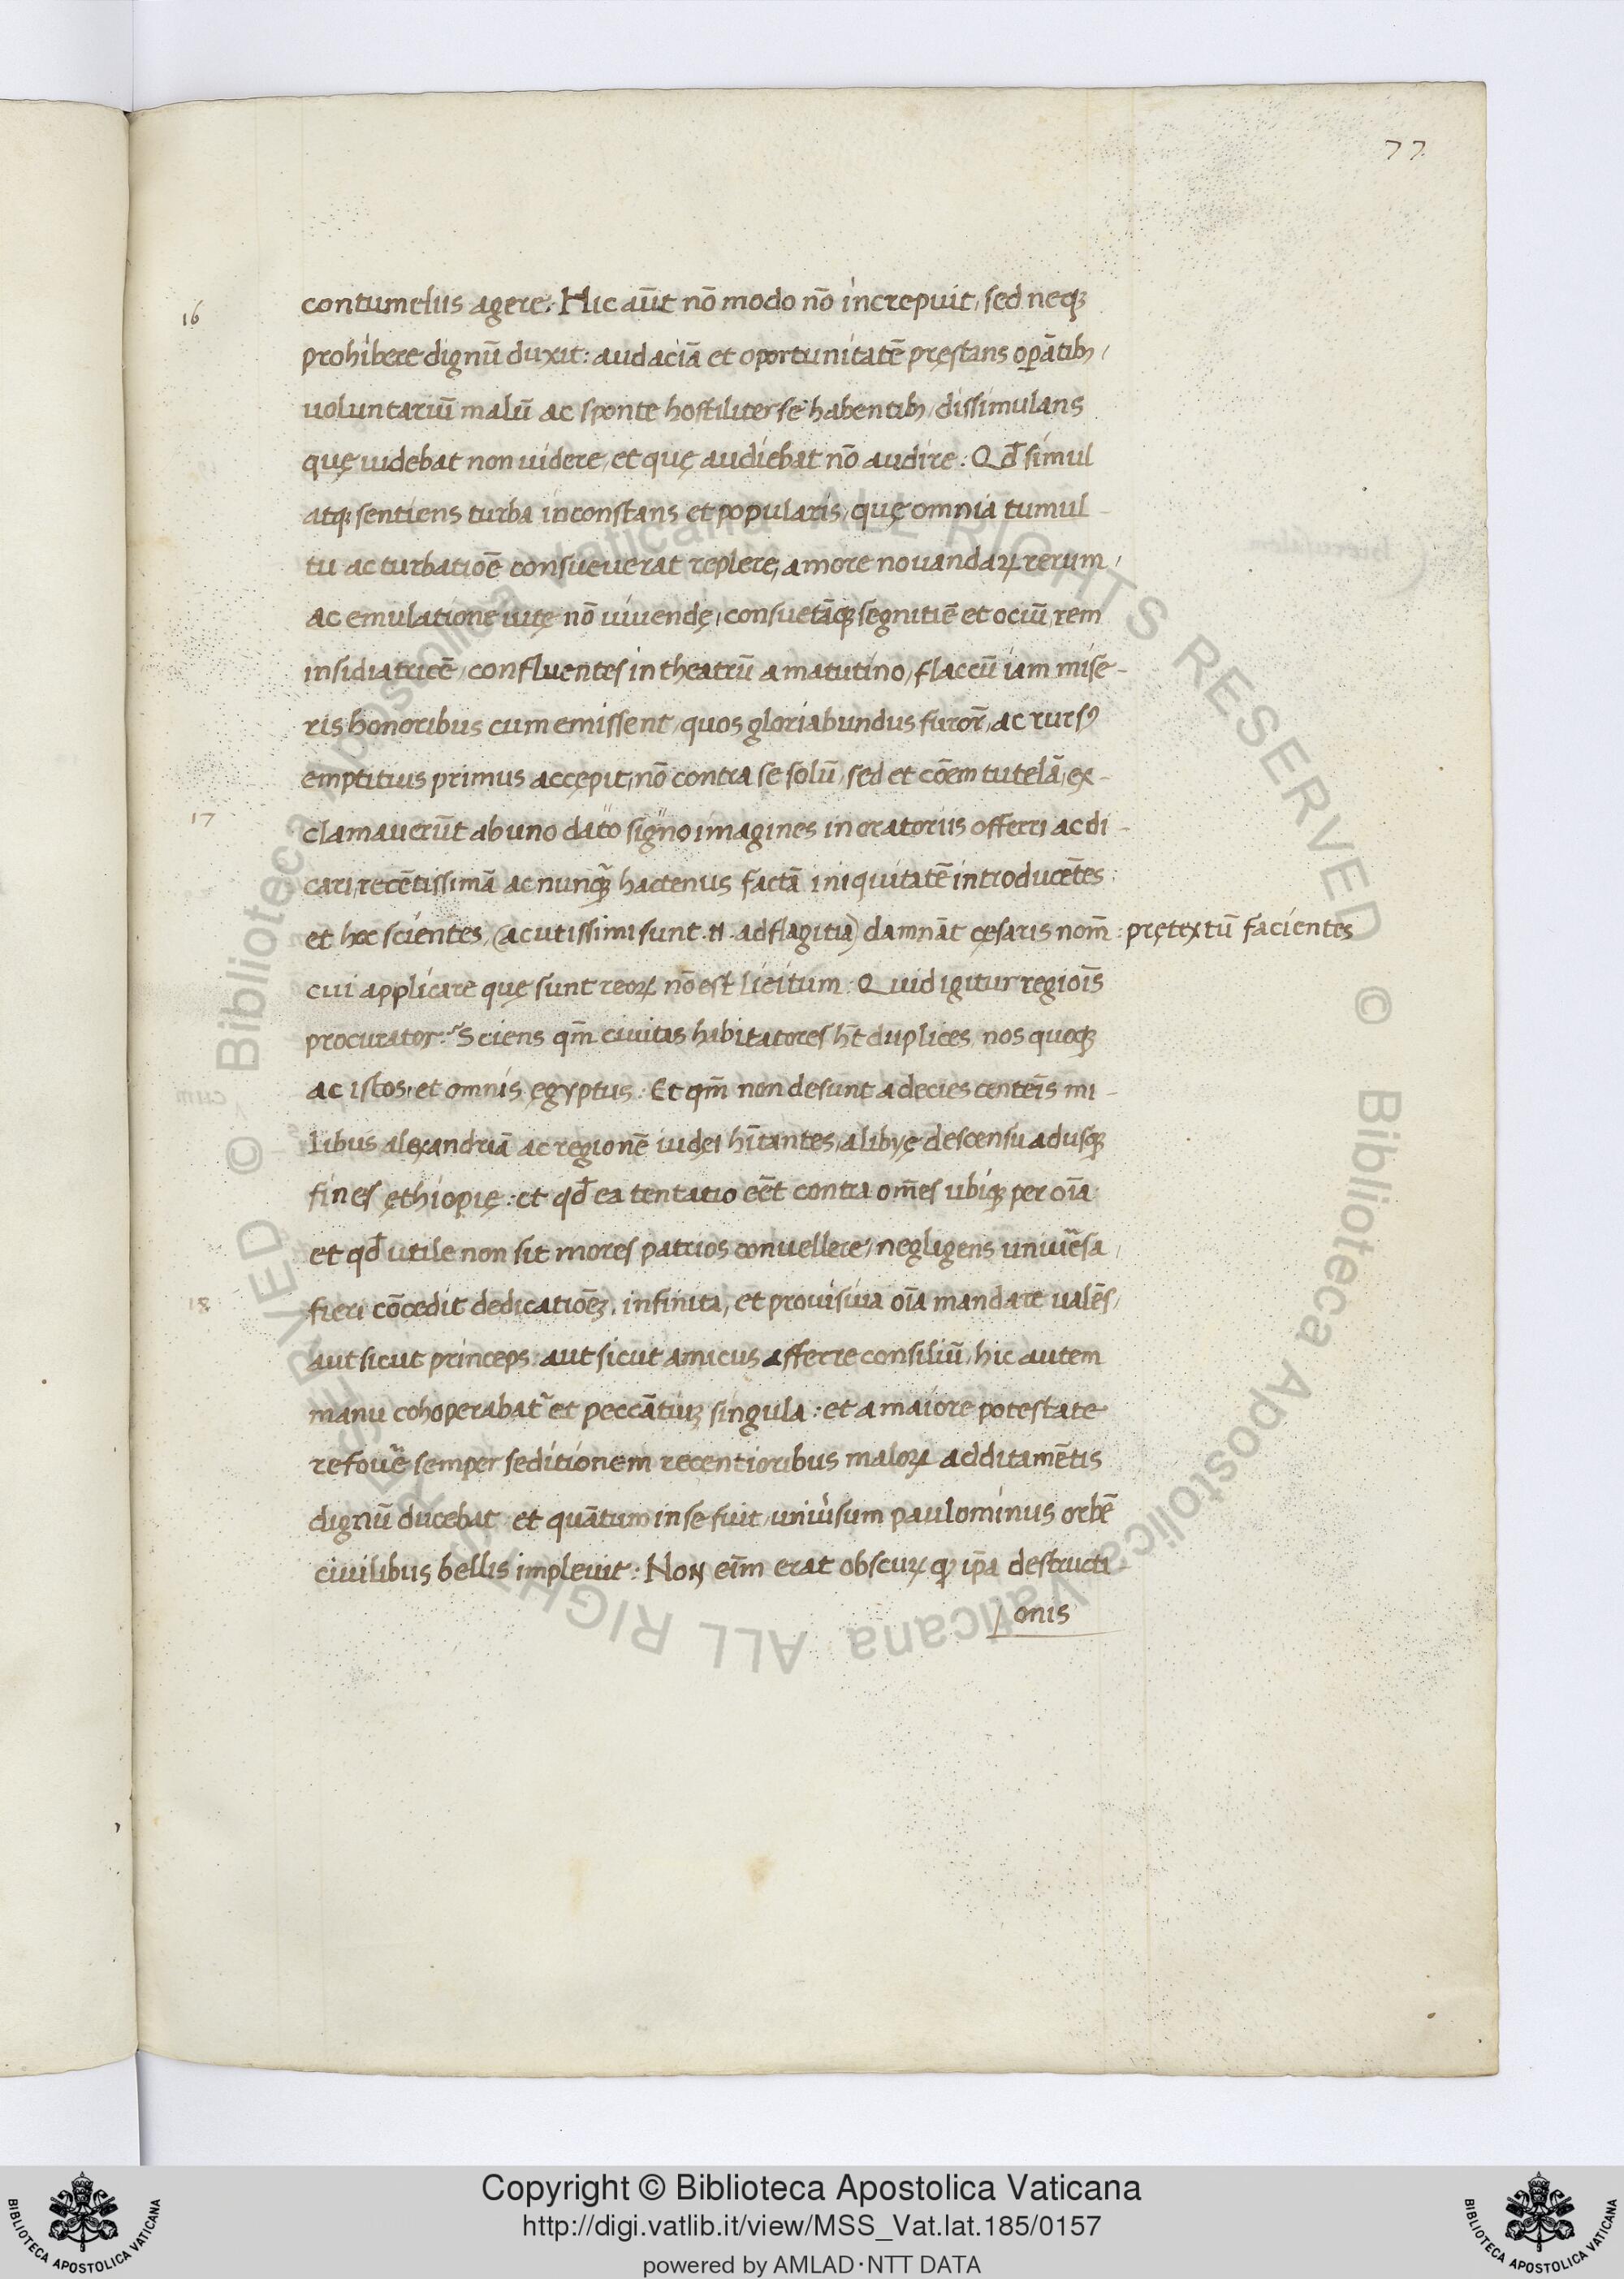 77
16
contumeliis agere. Hic aūt nō modo nō increpuit, sed neqꝫ
prohibere dignū duxit: audaciā et oportunitatē pręstans oꝑātibꝫ,
uoluntariū malū ac sponte hostiliter se habentibꝫ, dissimulans
quę uidebat non uidere, et quę audiebat nō audire: Qđ simul
atqꝫ sentiens turba inconstans et popularis, quę omnia tumul-
tu ac turbatiōe consueuerat replere, amore nouandaꝝ rerum,
ac emulatione uitę nō uiuendę, consuetāqꝫ segnitiē et ociū, rem
insidiatricē, confluentes in theatrū a matutino, flaccū iam mise-
ris honoribus cum emissent, quos gloriabundus furor̄, ac rursꝰ
emptitius primus accępit, nō contra se solū, sed et cōem tutelā, ex-
17
clamauerūt ab uno dato signo imagines in oratoriis offerri ac di-
cari, recētissimā ac nunqꝫ̄ hactenus factā iniquitatē introducētes:
et hoc scientes, (acutissimi sunt .n. ad flagitia) damnāt cęsaris nom̄: pretextū facientes
cui applicare quę sunt reoꝝ nō est licitum: Quid igitur regiōis
procurator? Sciens qm̄ ciuitas habitatores hn̄t duplices, nos quoqꝫ
ac istos, et omnis ęgyptus: Et qm̄ non desunt a decies centeīs mi-
libus, alexandriā ac regionē iudęi hītantes, a libyę descensu adusqꝫ
fines ęthiopię: et qđ ea tentatio eēt contra om̄es ubiqꝫ per oīa
et qđ utile non sit mores patrios conuellere, negligens uniūesa,
18
fieri cōcedit dedicatiōeꝫ, infinita, et prouisiua oīa mandare ualēs,
aut sicut princeps: aut sicut amicus afferre consiliū, hic autem
manu cohoperabat᷑ et peccātiuꝫ singula: et a maiore potestate
refouē semper seditionem recentioribus maloꝝ additamētis
dignū ducebat et quātum in se fuit, uniūsum paulominus orbē
ciuilibus bellis impleuit: Non eīm erat obscuꝝ qꝫ ip̄a destructi-
onis
Copyright © Biblioteca Apostolica Vaticana
http://digi.vatlib.it/view/MSS_Vat.lat.185/0157
powered by AMLAD·NTT DATA
BIBLIOTECA APOSTOLICA VATICANA
BIBLIOTECA APOSTOLICA VATICANA
© Biblioteca Apostolica Vaticana ALL RIGHTS RESERVED © Biblioteca Apostolica Vaticana ALL RIGHTS RESERVED